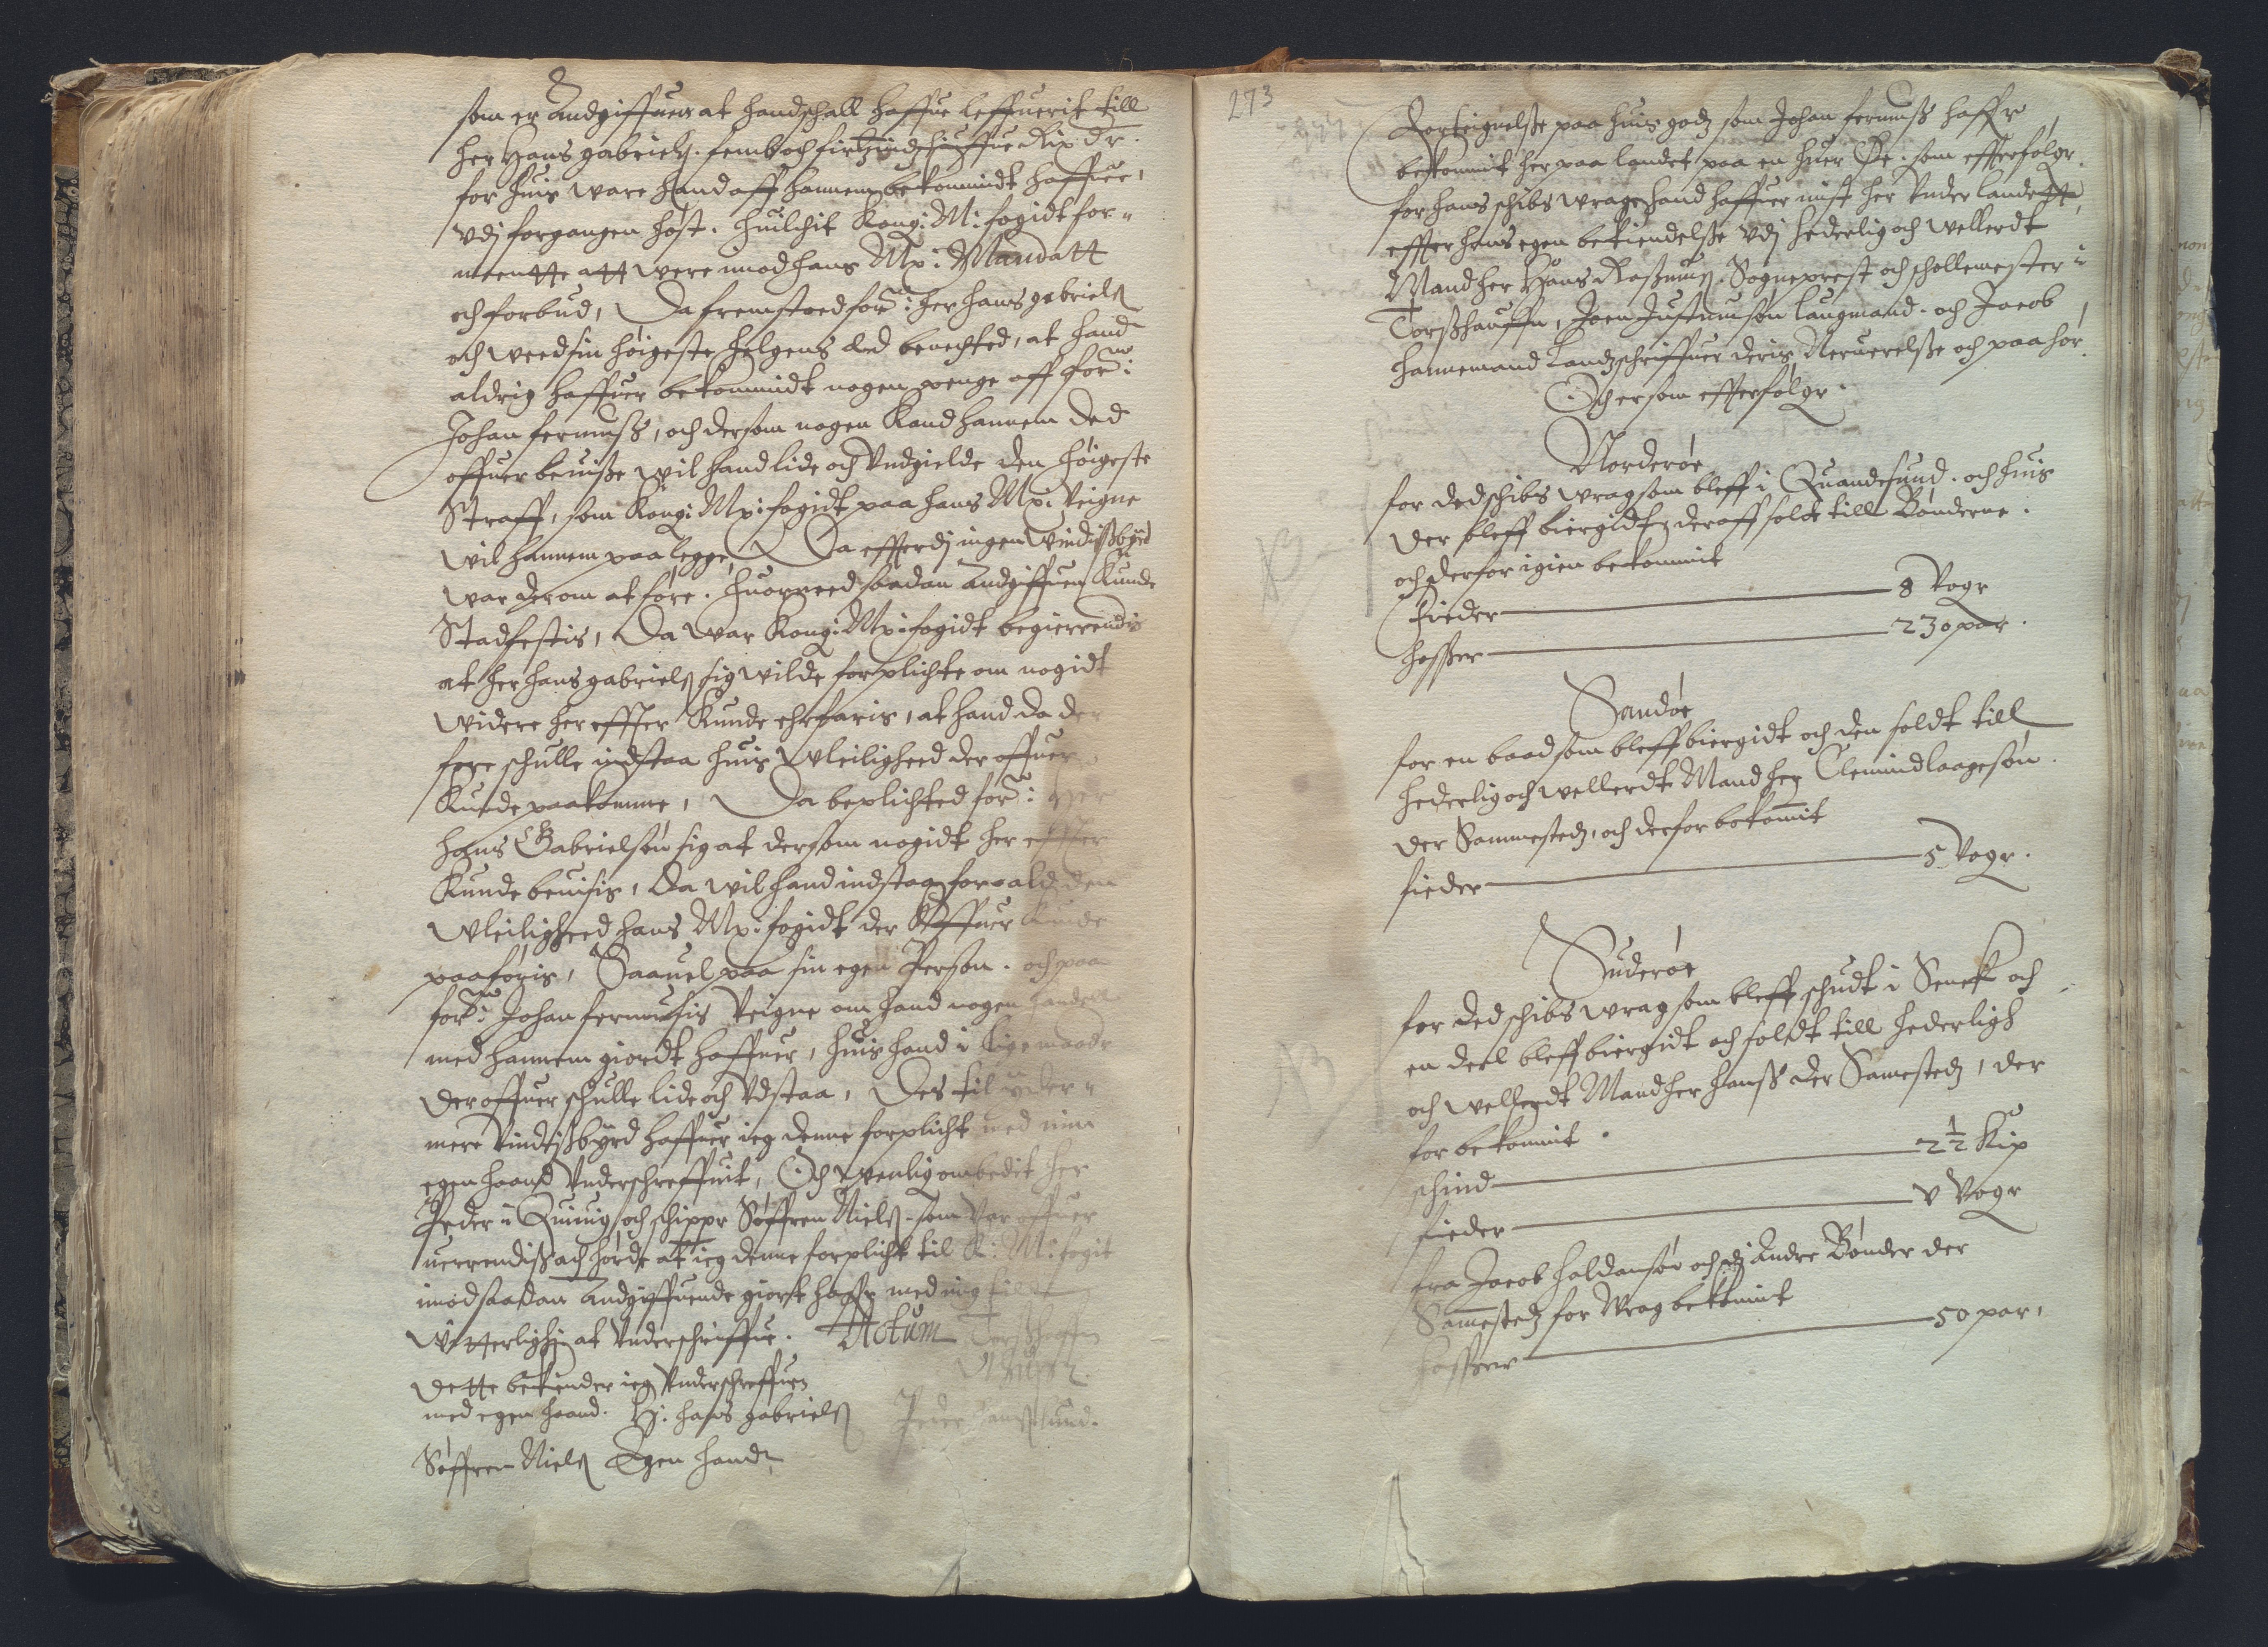 som er andgiffuen at hand schall haffue leffuerit till
her Hans gabriels. femb och firtzindzthiuffue Rix dr.
for huis ware hand aff hannem bekommidt haffuer,
vdj forgangen høst. huilchit Kong: M: fogidt for-
meentte att were imod hans Mx: Mandatt
och forbud, Da fremstoed for: her hans gabriels
och weed sin høigeste helgens eed benechted, at hand
aldrig haffuer bekommidt nogen penge aff for:
Johan fermuss, och dersom nogen Kand hannem ded
offuerbeuisse wil hand lide och Vndgielde den høigeste
Straff, som Kong: Mx: fogidt paa hans Mx: Veigne
wil hannem paa legge, Da effterdj ingen Vindissbyrd
war der om at føre. huormed saadan andgiffuen Kunde
Stadfestis, Da war Kong: Mx: fogidt begierrendis
at her hans gabriels sig wilde forplichte om nogidt
widere her effter Kunde erfaris, at hand da der
fore schulle indstaa huis Vleiligheed der offuer
Kunde paakomme, Da beplichted for: Her
hans Gabrielsøn sig at dersom nogidt her effter
Kunde beuisis, Da wil hand indstaa for ald den
Vleiligheed hans Mx: fogidt der offuer Kunde
paaføris, Saauel paa sin egen Person. och paa
for: Johan fermusis Veigne om hand nogen handell
med hannem giordt haffuer, huis hand i lige maade
der offuer schulle lide och Vdstaa, Des til yder-
mere Vindissbyrd haffuer ieg denne forplicht med min
egen haand Vnderschreffuit, Och wenlig ombedit her
Peder i Quiuig och schipper Søffren Niels som Var offuer
uerrendiss och hørde at ieg denne forplicht til K: M: fogit
imod saadan andgiffuende giort haffr med mig til
Witterlighed at Vnderschriffue. Actum Torsshaffn
Dette bekiender ieg Vnderschreffuen
med egen haand. H: hans gabriels Peder hansslund.
Søffren Niels Egen hand
273
Forteignelsse paa huis godz som Johan fermuss haffr
bekommit her paa landet paa en huer Øe: som effterfølgr.
for hans schibs wrag hand haffuer mist her Vnder landet,
effter hans egen bekiendelsse Vdj hederlig och wellerdt
Mand her Hans Rassmus. Sogneprest och schollemester i
Torsshauffn, Joen Justinusøn laugmand. och Jacob
hannemand Landzschriffuer deris Neruerelsse och paahør
Och er som effterfølgr.
Norderøe
for ded schibs wrag som bleff i Quandesund. och huis
der bleff biergidt deraff solde till Bønderne.
och derfor igien bekommit
fieder 8 Vogr
hosser 230 par.
Sandøe
for en baad som bleff biergidt och den soldt till
hederlig och wellerdt Mand her Clemind laagesøn.
der Sammestedz, och derfor bekommit
fieder 5 Vogr.
Suderøe
for ded schibs wrag som bleff schudt i Senek och
en deel bleff biergidt och soldt till hederligh
och wellerdt Mand her hanss der Samestedz, der
for bekommit
schind 2½ Kip
fieder V Vogr
fra Jacob haldansør och dj andre Bønder der
Samestedz for Wrag bekommit
hosser 50 par,